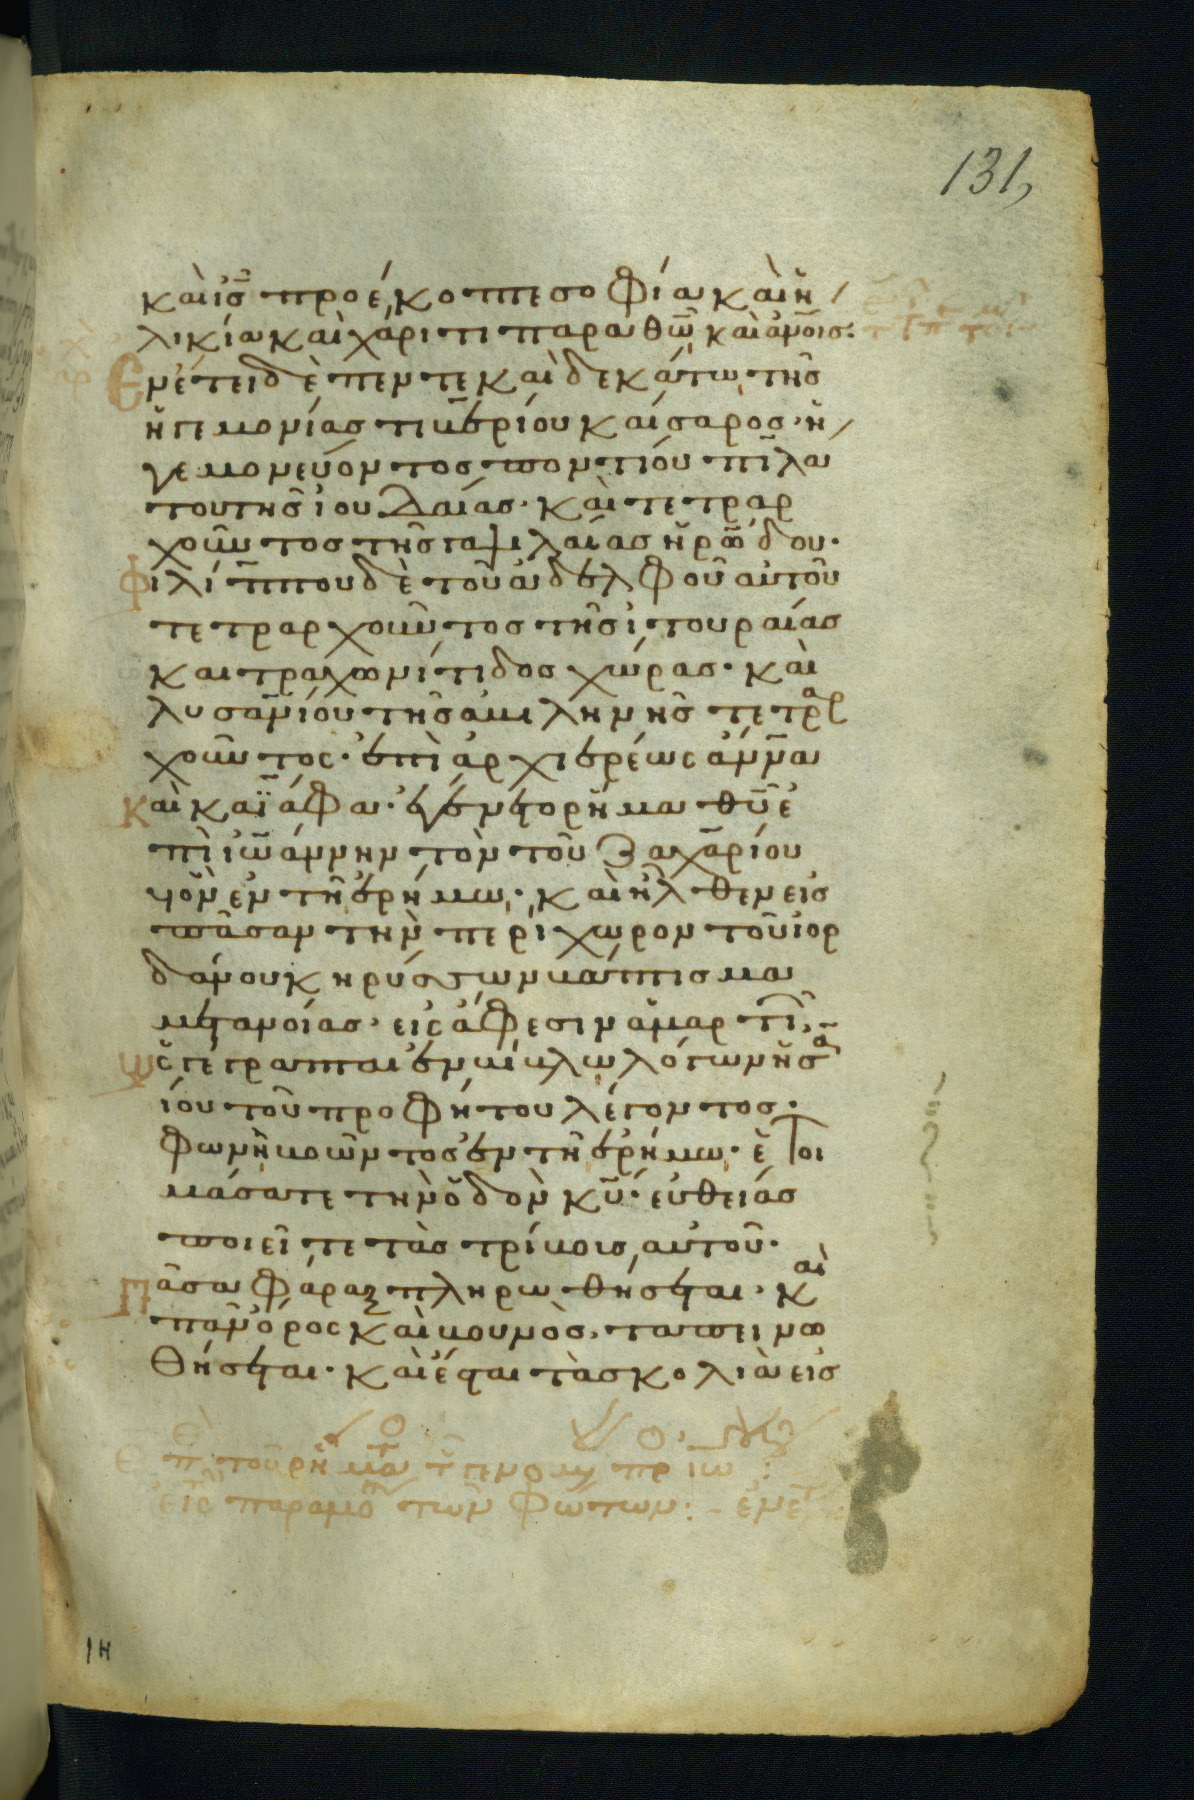 131,
καὶ ἰς̅ προέκοπτε σοφία καὶ ἡ
λικία καὶ χάριτι παρα θω̅ καὶ ἀνο̅ις:
Ἐν ἔτει δὲ πεντε καὶ δεκάτω, τῆς
ἡγεμονίας τιβερίου καίσαρος· ἡ
γεμονεύοντος ποντίου πιλα
του τῆς ἰουδαίας· καὶ τετραρ
χοῦντος τῆς γαλιλαίας ἡρώδου·
Φιλίππου δὲ τοῦ ἀδελφοῦ αὐτοῦ
τετραρχοῦντος τῆς ἰτουραίας
και τραχωνίτιδος χώρας· καὶ
λυσανίου τῆς ἀβιληνῆς τετραρ
χοῦντος· ἐπὶ ἀρχιερέως ἄννα
Καὶ καϊάφα· ἐγένετο ῥῆμα θυ̅ ἐ
πὶ ἰωάννην τὸν τοῦ Ζαχαρίου
υἱὸν ἐν τῇ ἐρήμω· καὶ ἦλθεν εἰς
πᾶσαν τὴν περίχωρον τοῦ ἰορ
δάνου κηρύσσων βάπτισμα
μετανοίας· εἰς ἄφεσιν ἁμαρτι
Ὡς γέγραπται ἐν βίβλω λόγων ἡσα
ίου τοῦ προφήτου λέγοντος·
φωνὴ βοῶντος ἐν τῇ ἐρήμω· ἑτοι
μάσατε τὴν ὁδὸν κυ̅· εὐθείας
ποιεῖτε τὰς τρίβους αὐτοῦ·
Πᾶσα φάραγξ πληρωθήσεται· καὶ
πᾶν ὄρος καὶ βουνὸς, ταπεινω
θήσεται· καὶ ἔσται τὰ σκολιὰ εἰς
εἰς παραμο τῶν φώτων:
ιη